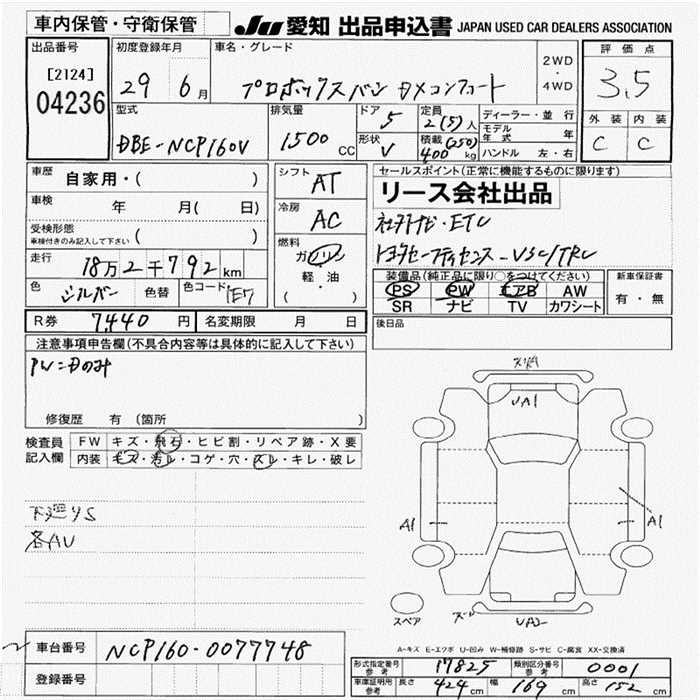 車内保管・守衛保管 JU 愛知 出品申込書 JAPAN USED CAR DEALERS ASSOCIATION
出品番号 初度登録年月 車名・グレード 評価点
[2124] 29 6月 プロボックスバン DXコンフォート 2WD・4WD 3.5
04236
型式 排気量 ドア 5 定員 2(5)人 ディーラー・並行 外装 内装
DBE-NCP160V 1500 CC 形状 V 積載 (250) 400 kg モデル年式 年 C C
ハンドル 左・右
車歴 自家用・( ) シフト AT セールスポイント(正常に機能するものに限ります)
リース会社出品
車検 年 月(日) 冷房 AC
社外ナビ・ETC
受検形態 車検付きのみ記入して下さい ( ) 燃料 ガソリン
トヨタセーフティセンス-VSC/TRC
走行 18万2千792km 軽・油
装備品(純正品に限り○をつけてください) 新車保証書
色 シルバー 色替 色コード 1E7 ( )
PS PW エアB AW 有・無
SR ナビ TV カワシート
R券 7440円 名変期限 月 日 後日品
注意事項申告欄(不具合内容等は具体的に記入して下さい)
PW=Dのみ
修復歴 有 (箇所 )
検査員記入欄 FW キズ・飛石・ヒビ割・リペア跡・X要
内装 キズ・汚レ・コゲ・穴・スレ・キレ・破レ
スリキ
UA1
下廻りS
各AU
A1 A1
スペア スレ UA2
A-キズ E-エクボ U-凹み W-補修跡 S-サビ C-腐食 XX-交換済
車台番号 NCP160-0077748
登録番号
形式指定番号 参考 17825 類別区分番号 参考 0001
車庫証明用 参考 長さ 424cm 幅 169cm 高さ 152cm